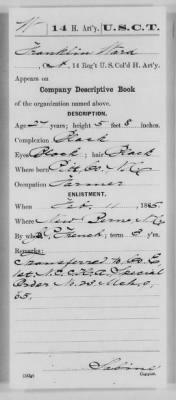 W 14 H. Art'y. U.S.C.T.
Franklin Ward
Co. , 14 Reg't U.S. Col'd H. Art'y.
Appears on
Company Descriptive Book
of the organization named above.
DESCRIPTION.
Age years; height 5 feet 8 inches.
Complexion Black
Eyes Black; hair Black
Where born Pitt, Co. N.C.
Occupation Farmer
ENLISTMENT.
When Feb. 11, 1865
Where New Berne N.C.
By whom French; term y'rs.
Remarks:
Transferred to Co.
1st. N.C. C.H.A. Special
Order No. 23 Mch. 9,
65.
Copyist.